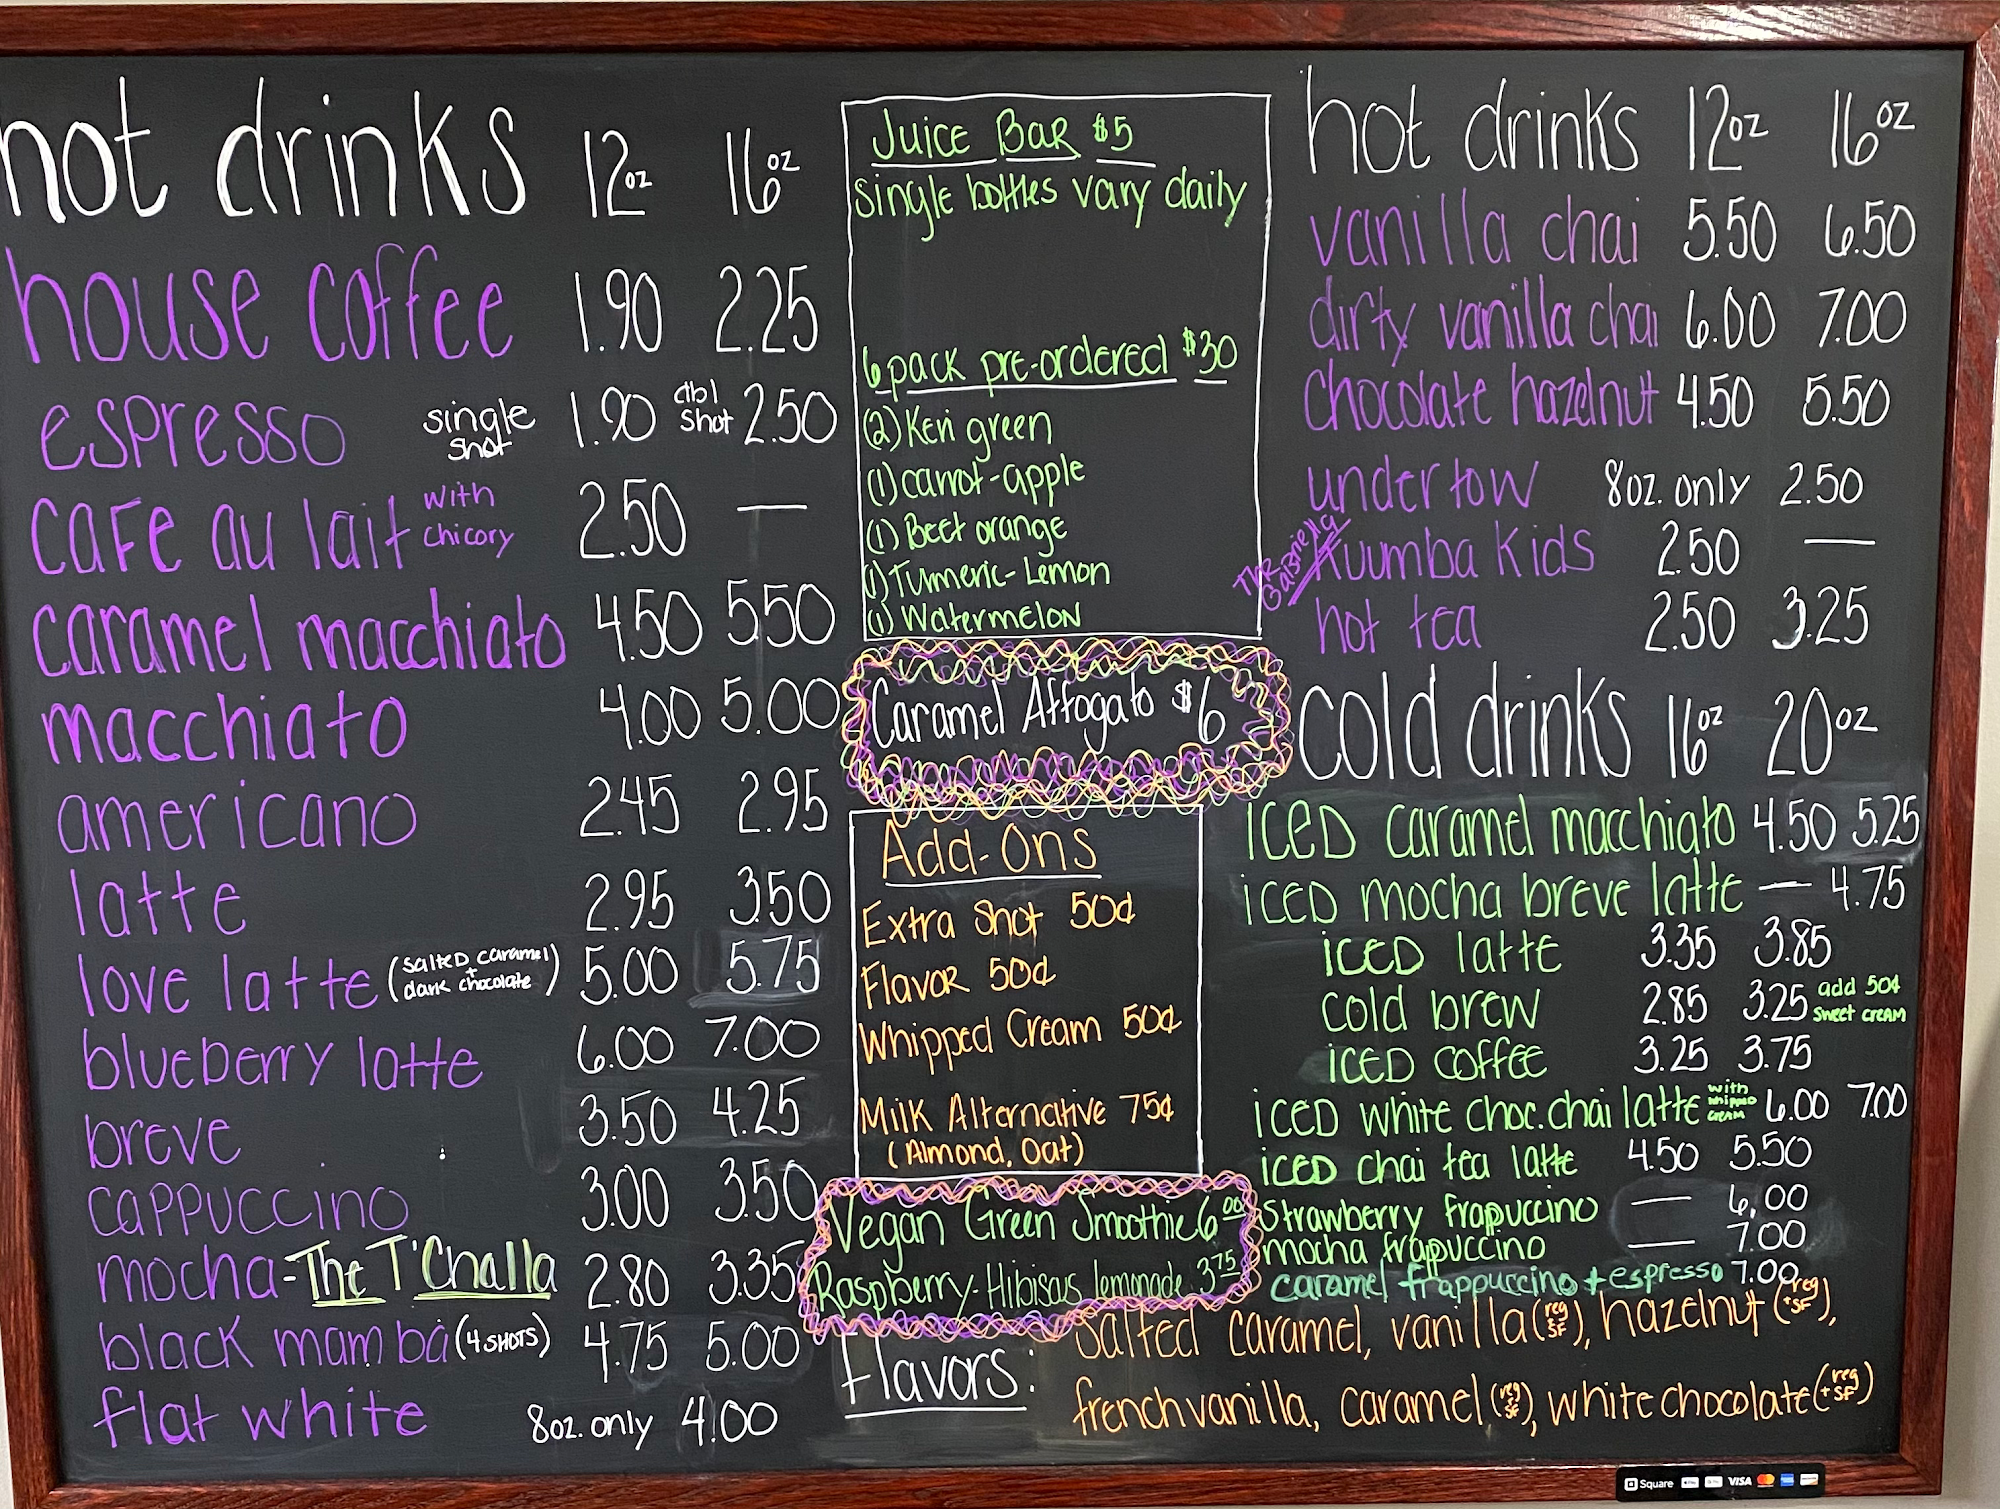 hot drinks 12oz 16oz
house coffee 1.90 2.25
espresso single shot 1.90 dbl shot 2.50
cafe au lait with chicory 2.50 —
caramel macchiato 4.50 5.50
macchiato 4.00 5.00
americano 2.45 2.95
latte 2.95 3.50
love latte (salted caramel + dark chocolate) 5.00 5.75
blueberry latte 6.00 7.00
breve 3.50 4.25
cappuccino 3.00 3.50
mocha-The T'Challa 2.80 3.35
black mamba (4 SHOTS) 4.75 5.00
flat white 8oz. only 4.00
Juice Bar $5
single bottles vary daily
6 pack pre-ordered $30
(2) Keri green
(1) carrot-apple
(1) Beet orange
(1) Turmeric-Lemon
(1) Watermelon
Caramel Affogato $6
Add-Ons
Extra Shot 50¢
Flavor 50¢
Whipped Cream 50¢
Milk Alternative 75¢
(Almond, Oat)
Vegan Green Smoothie 6.00
Raspberry-Hibiscus lemonade 3.75
hot drinks 12oz 16oz
vanilla chai 5.50 6.50
dirty vanilla chai 6.00 7.00
chocolate hazelnut 4.50 5.50
undertow 8oz. only 2.50
The Gabriella
Kuumba Kids 2.50 —
hot tea 2.50 3.25
cold drinks 16oz 20oz
iced caramel macchiato 4.50 5.25
iced mocha breve latte — 4.75
iced latte 3.35 3.85
cold brew 2.85 3.25 add 50¢ sweet cream
iced coffee 3.25 3.75
iced white choc. chai latte with whipped cream 6.00 7.00
iced chai tea latte 4.50 5.50
strawberry frapuccino — 6.00
mocha frappuccino — 7.00
caramel frappuccino + espresso 7.00
Flavors: Salted caramel, vanilla (reg SF), hazelnut (reg + SF),
french vanilla, caramel (reg SF), white chocolate (reg + SF)
Square VISA